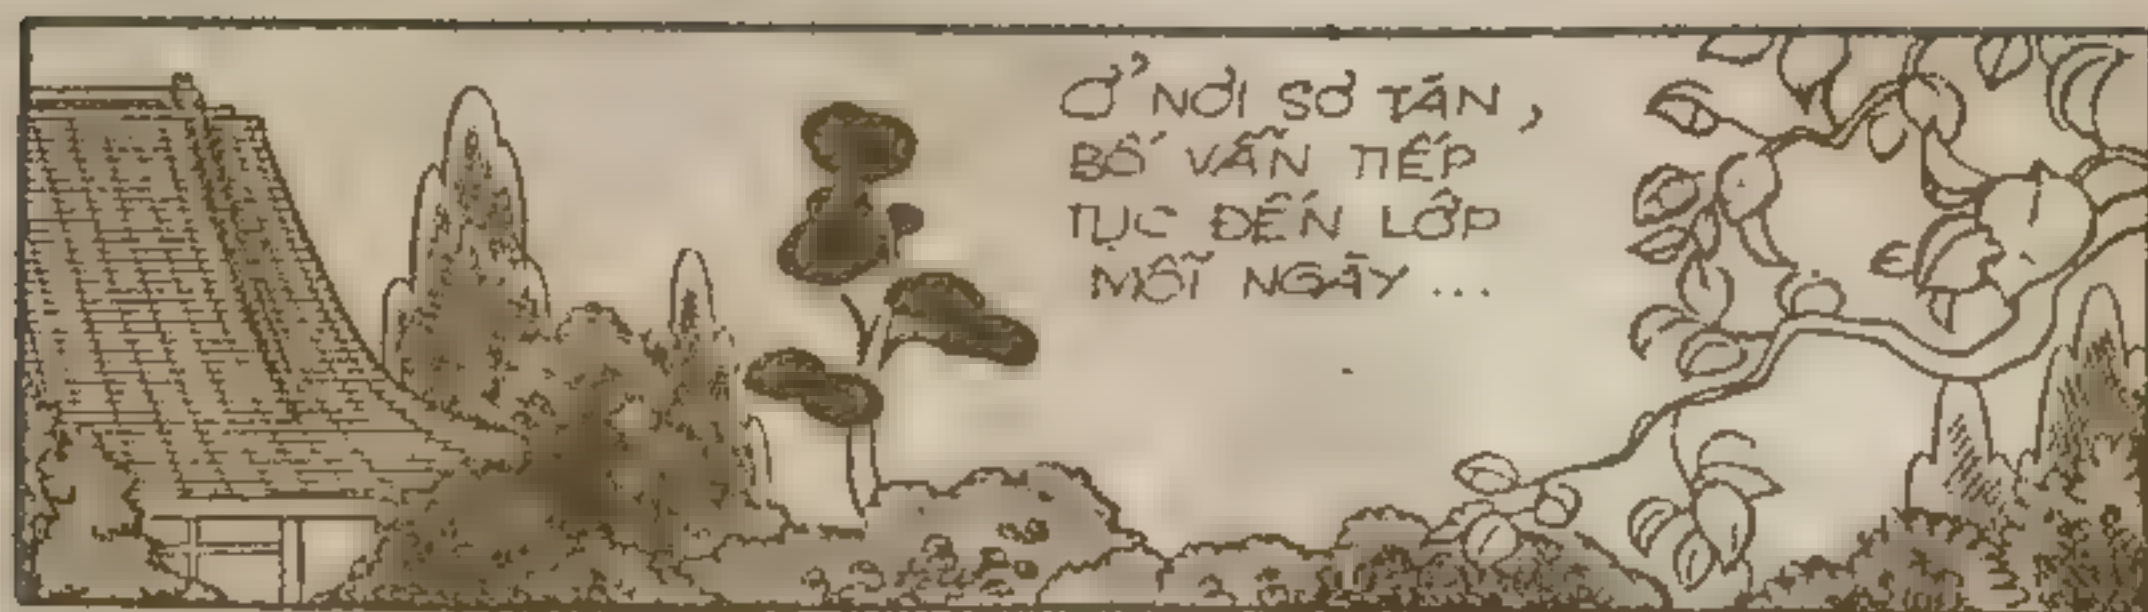 Ở NƠI SƠ TÁN,
BỐ VẪN TIẾP
TỤC ĐẾN LỚP
MỖI NGÀY...